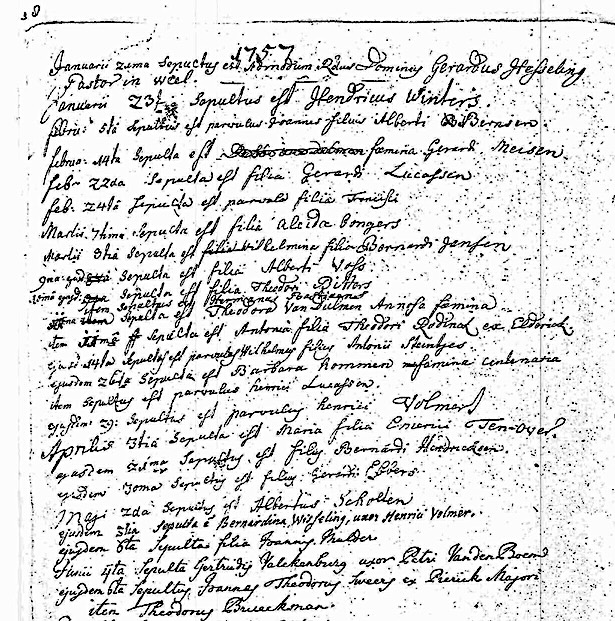 1757
Januarii 2ma Sepultus est Admodum Rdus Dominus Gerardus Hesseling
Pastor in Weel
Januarii 23t Sepultus est Hendricus Winters
Febru: 5ta Sepultus est parvulus Joannes filius Alberti Bernsen
februa: 14ta Sepulta est femina Gerardi Meisen
feb: 22da Sepulta est filia Gerardi Lucassen
feb: 24ta Sepulta est parvula filia
Martii 7tima Sepulta est filia Aleida bongers
Martii 3tia Sepulta est Wilhelmina filia Bernardi Jansen
Sepulta est filia Alberti Voss
Sepulta est filia Theodori Ritters
item Sepultus est Hermanus
item Sepulta est Theodora Van Dulmen Annosa femina
item Sepulta est Antonia filia Theodori ex Elderick
ejusd 14ta Sepultus est parvulus Wilhelmus filius Antonii Steintjes
ejusdem 26ta Sepulta est Barbara hommen femina centenaria
item Sepultus est parvulus henrici Lucassen
ejusdem 29: Sepultus est parvulus henrici Volmer
Aprilis 3tia Sepulta est Maria filia Emerici Ten-Over
ejusdem 21ma Sepultus est filius Bernardi Hendricksen
ejusdem 30ma Sepultus est filius Gerardi Ebbers
Maji 2da Sepultus est Albertus Scholten
ejusdem 5ta Sepulta e Bernardina Wisseling, uxor Henrici Volmer.
ejusdem 6ta Sepulta filia Joannis Mulder
Junii 4ta Sepulta Gertrudis Valckenburg uxor Petri Van den Boom
ejusdem 6ta Sepultus Joannes Theodorus Sweers ex Pierick Majori
item Theodorus Brueckman